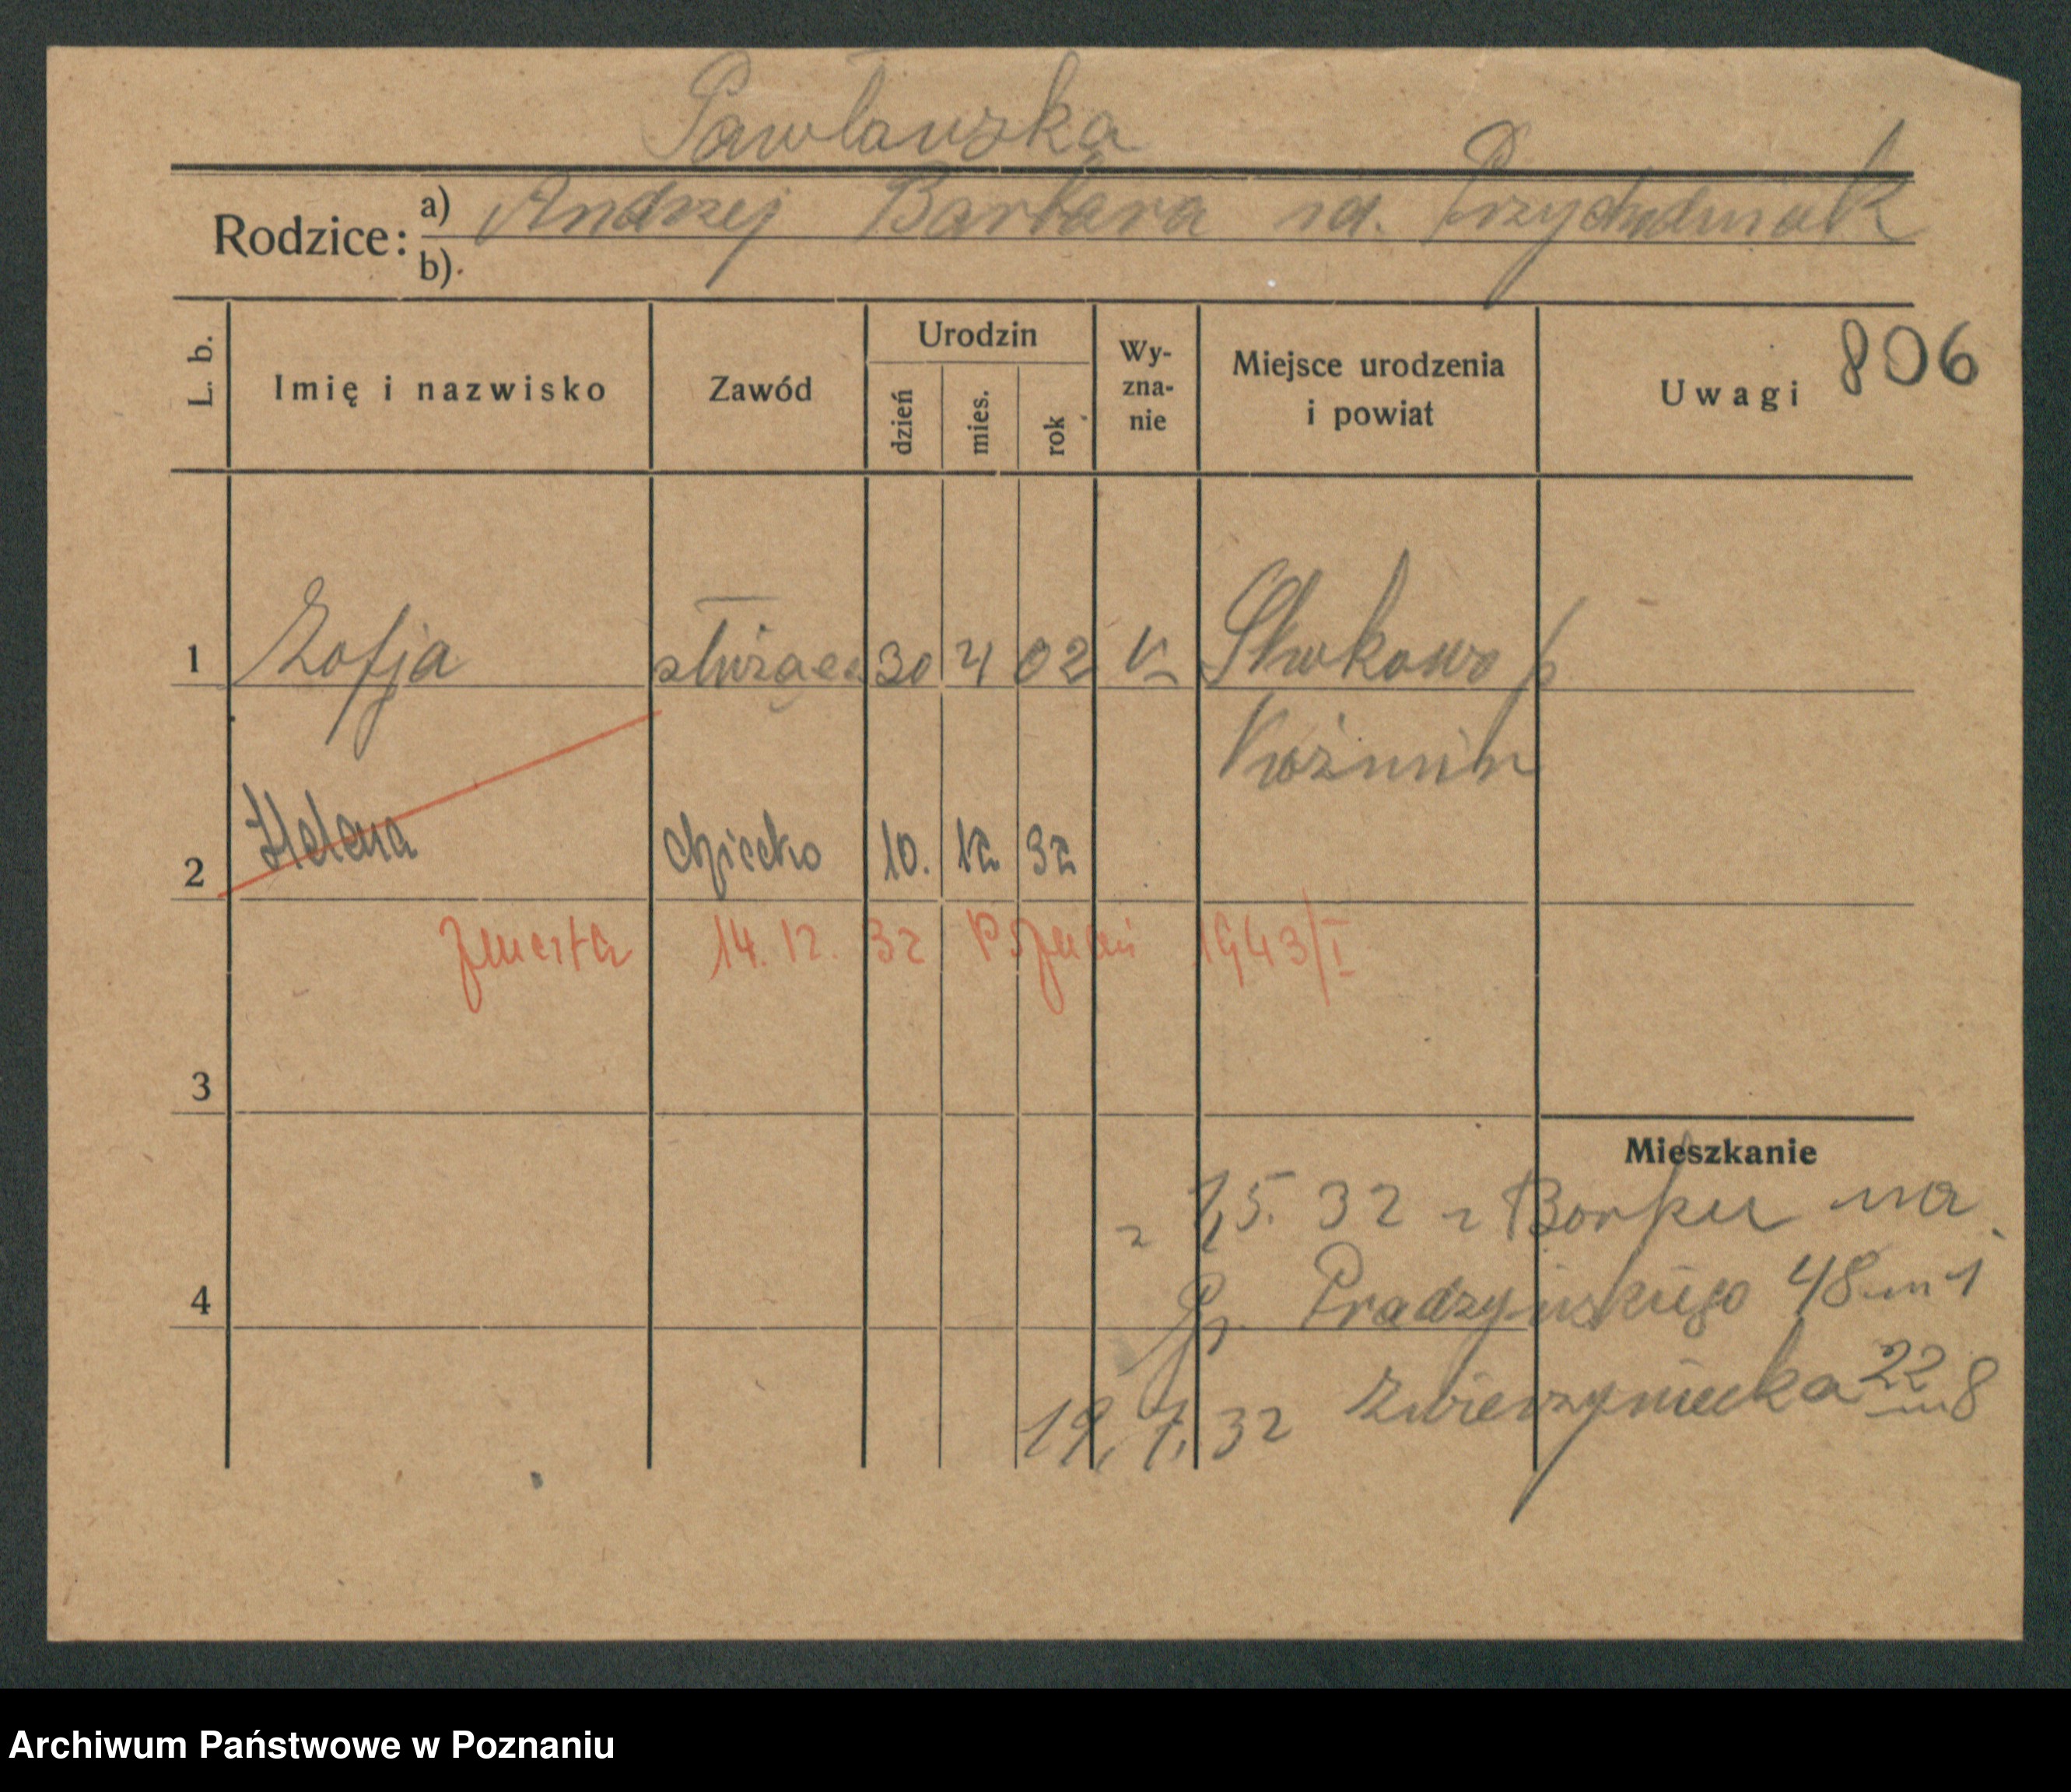 Pawlauzka
Rodzice: a) Andrzej Barbara rd. Przychodniak
b)
L. b. Imię i nazwisko Zawód Urodzin dzień mies. rok Wy-zna-nie Miejsce urodzenia i powiat Uwagi 806
1 Zofja służąca 30 4 02 k Skokowo p
Koźmin
2 Helena dziecko 10. 12 32
zmarła 14. 12. 32 Poznań 1943/I
3
Mieszkanie
z 1,5. 32 z Borku na
4 Pradzyńskiego 48 m 1
19, 7, 32 Zwierzyniecka 22 m 8
Archiwum Państwowe w Poznaniu